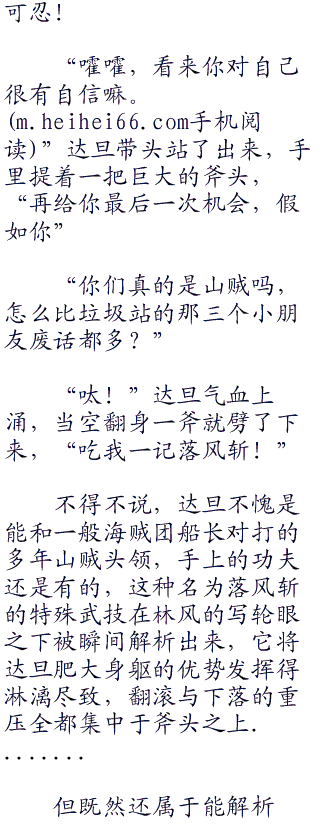 可忍!
“嚯嚯，看来你对自己
很有自信嘛。
(m.heihei66.com手机阅
读)”达旦带头站了出来，手
里提着一把巨大的斧头，
“再给你最后一次机会，假
如你”
“你们真的是山贼吗，
怎么比垃圾站的那三个小朋
友废话都多？”
“呔！”达旦气血上
涌，当空翻身一斧就劈了下
来，“吃我一记落风斩！”
不得不说，达旦不愧是
能和一般海贼团船长对打的
多年山贼头领，手上的功夫
还是有的，这种名为落风斩
的特殊武技在林风的写轮眼
之下被瞬间解析出来，它将
达旦肥大身躯的优势发挥得
淋漓尽致，翻滚与下落的重
压全都集中于斧头之上.
.......
但既然还属于能解析